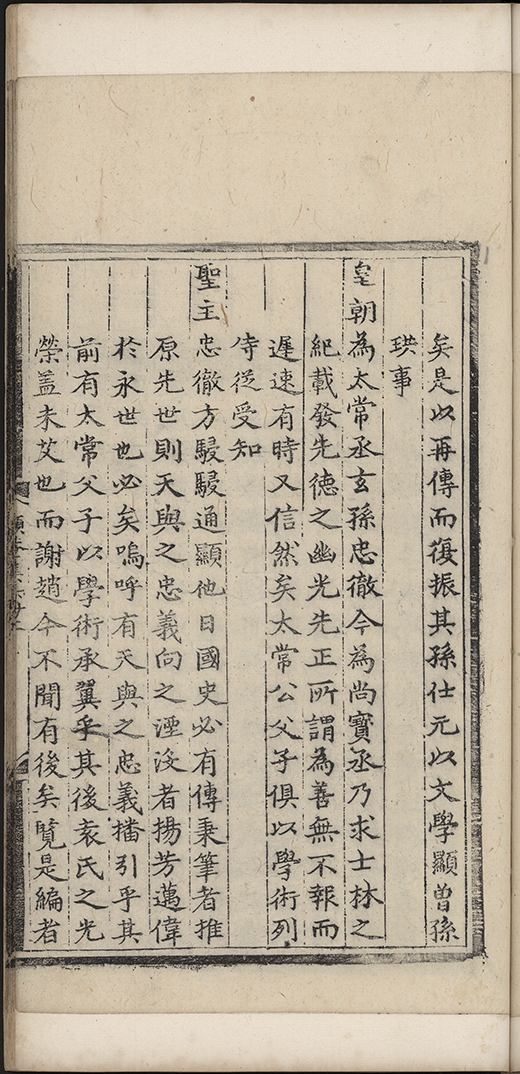 矣是以再傳而復振其孫仕元以文學顯曾孫
珙事
皇朝為太常丞玄孫忠徹今為尚寶丞乃求士林之
紀載發先德之幽光先正所謂為善無不報而
遲速有時又信然矣太常公父子俱以學術列
侍從受知
聖主忠徹方駸駸通顯他日國史必有傳秉筆者推
原先世則天與之忠義向之湮没者揚芳邁偉
於永世也必矣嗚呼有天與之忠義播引乎其
前有太常父子以學術承翼乎其後袁氏之光
榮盖未艾也而謝趙今不聞有後矣覽是編者